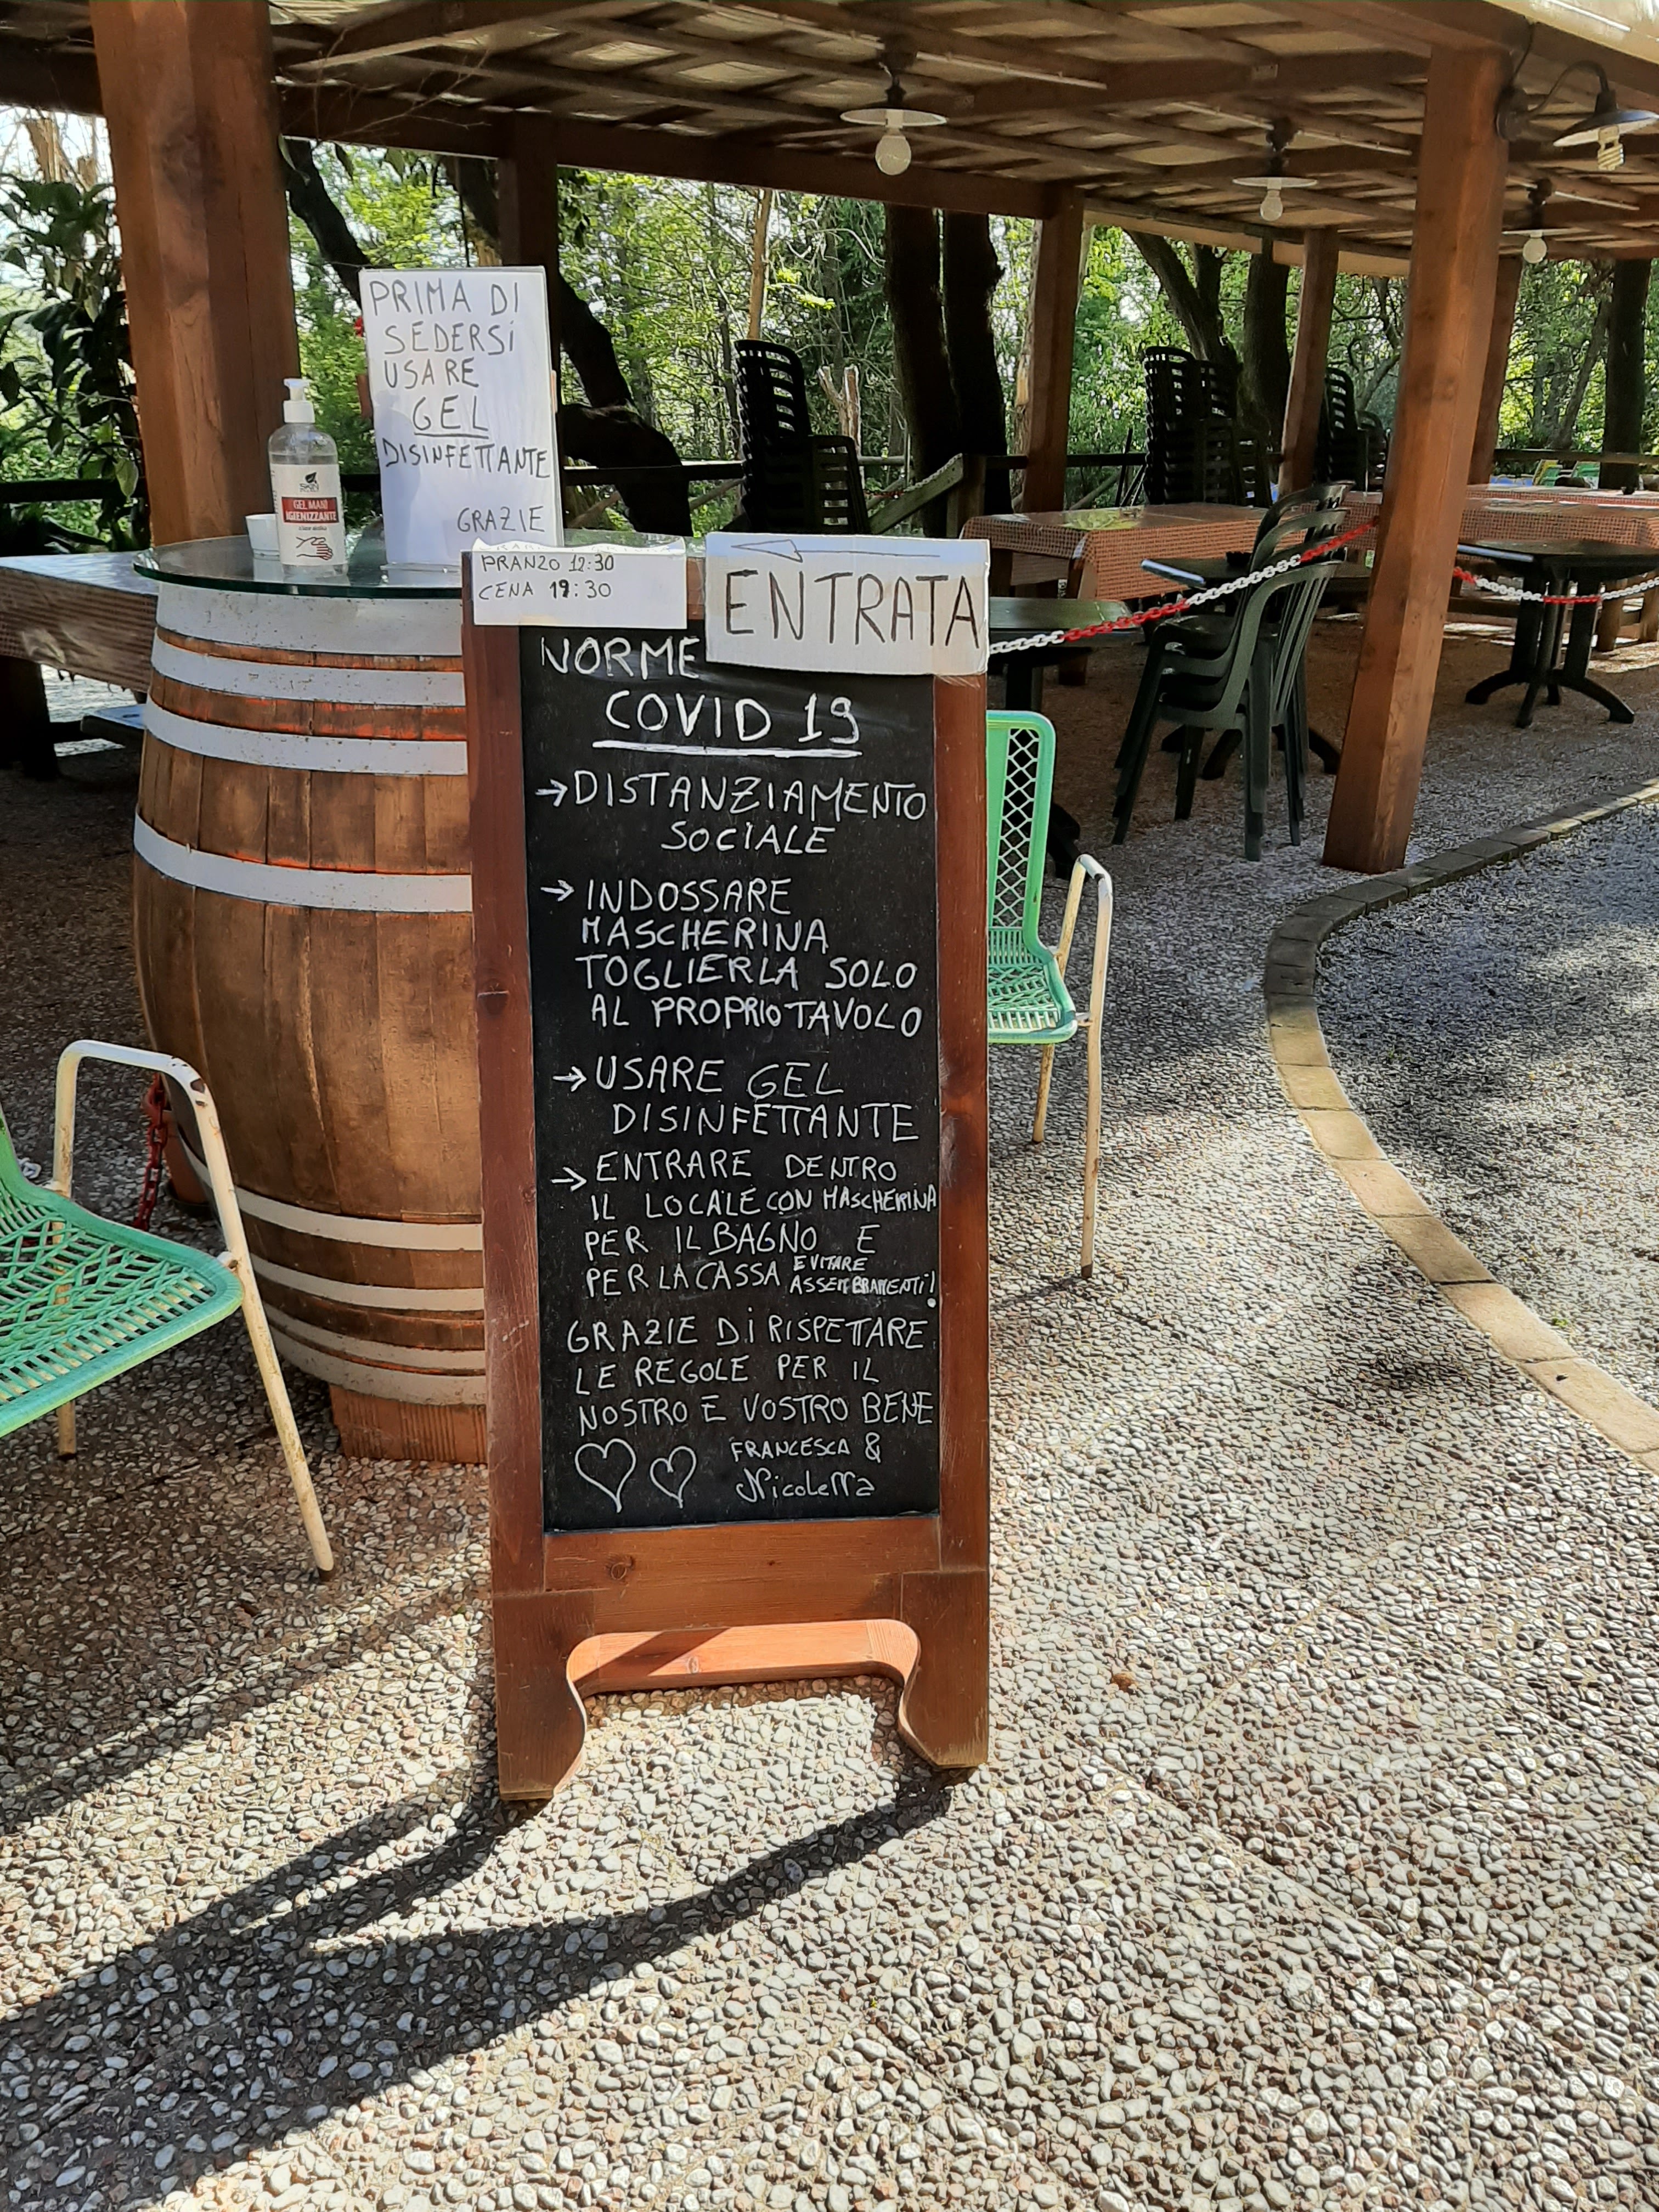 PRIMA DI
SEDERSi
USARE
GEL
DISINFETTANTE
GRAZIE
SKIN
GEL MANI
IGIENIZZANTE
PRANZO 12:30
CENA 19:30
ENTRATA
NORME
COVID 19
→ DISTANZIAMENTO
SOCIALE
→ INDOSSARE
MASCHERINA
TOGLIERLA SOLO
AL PROPRIO TAVOLO
→ USARE GEL
DISINFETTANTE
→ ENTRARE DENTRO
IL LOCALE CON MASCHERINA
PER IL BAGNO E
PER LA CASSA EVITARE
ASSEMBRAMENTI!
GRAZIE Di RISPETTARE
LE REGOLE PER IL
NOSTRO E VOSTRO BENE
FRANCESCA &
Nicoletta